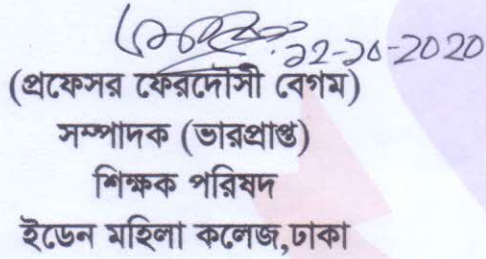 (প্রফেসর ফেরদৌসী বেগম)
সম্পাদক (ভারপ্রাপ্ত)
শিক্ষক পরিষদ
ইডেন মহিলা কলেজ,ঢাকা